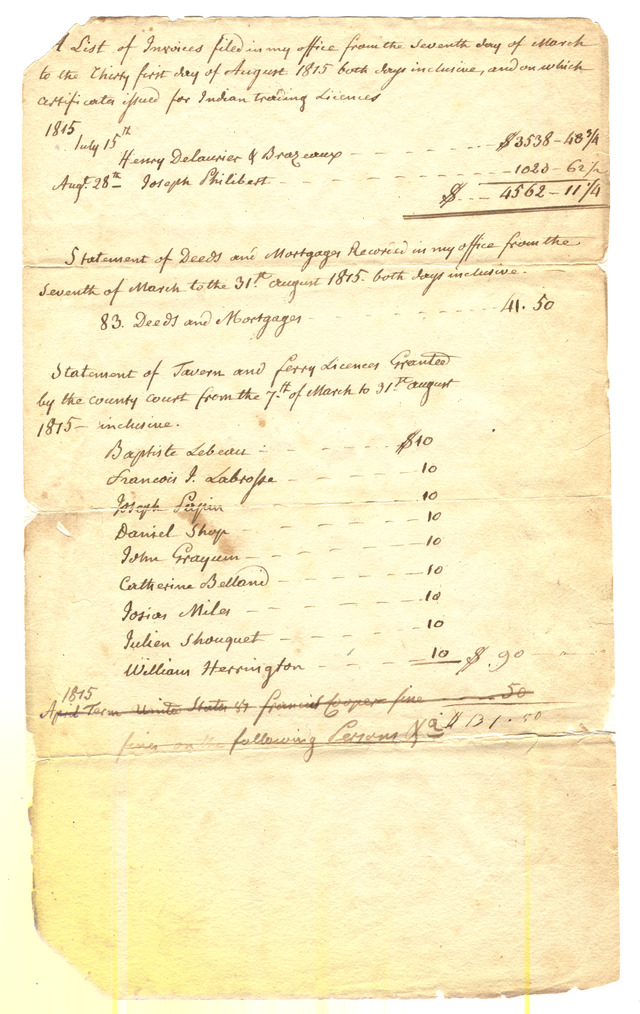 A List of Invoices filed in my office from the Seventh day of March
to the Thirty first day of August 1815 both days inclusive, and on which
certificates issued for Indian trading Licences
1815
July 15th Henry Delaurier & Brazeaux - - - - - $3538-48 3/4
Augt. 28th Joseph Philibert - - - - - 1023-62 1/2
$ - - 4562-11 1/4
Statement of Deeds and Mortgages Recorded in my office from the
Seventh of March to the 31st august 1815. both days inclusive.
83. Deeds and Mortgages - - - - - 41.50
Statement of Tavern and ferry Licences Granted
by the county court from the 7th of March to 31st august
1815 - inclusive.
Baptiste Lebeau - - - - $10
Francois J. Labrosse - - - - 10
Joseph Papin - - - - 10
Daniel Shop - - - - 10
John Grayum - - - - 10
Catherine Belland - - - - 10
Josias Miles - - - - 10
Julien Shouquet - - - - 10
William Herrington - - - 10 $.90
1815
April Term United States vs francis Cooper fine 50
fines on the following Persons $131.50